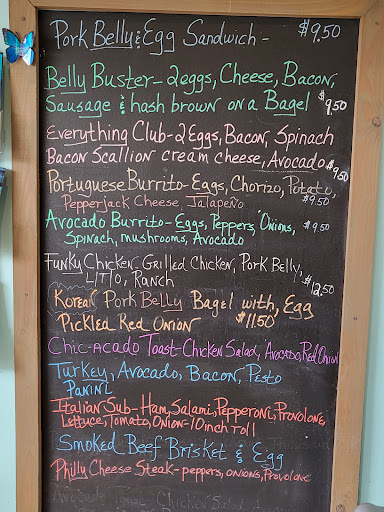 Pork Belly & Egg Sandwich - $9.50
Belly Buster - 2eggs, Cheese, Bacon,
Sausage & hash brown on a Bagel $9.50
Everything Club - 2 Eggs, Bacon, Spinach
Bacon Scallion cream cheese, Avocado $9.50
Portuguese Burrito - Eggs, Chorizo, Potato,
Pepperjack Cheese Jalapeño $9.50
Avocado Burrito - Eggs, Peppers, Onions, $9.50
Spinach, mushrooms, Avocado
Funky Chicken - Grilled Chicken, Pork Belly,
L/T/O, Ranch $12.50
Korean Pork Belly Bagel with, Egg
Pickled Red Onion $11.50
Chic-acado Toast - Chicken Salad, Avocado, Red Onion
Turkey, Avocado, Bacon, Pesto
Panini
Italian Sub - Ham, Salami, Pepperoni, Provolone,
Lettuce, Tomato, Onion - 10 inch roll
Smoked Beef Brisket & Egg
Philly Cheese Steak - peppers, onions, Provolone